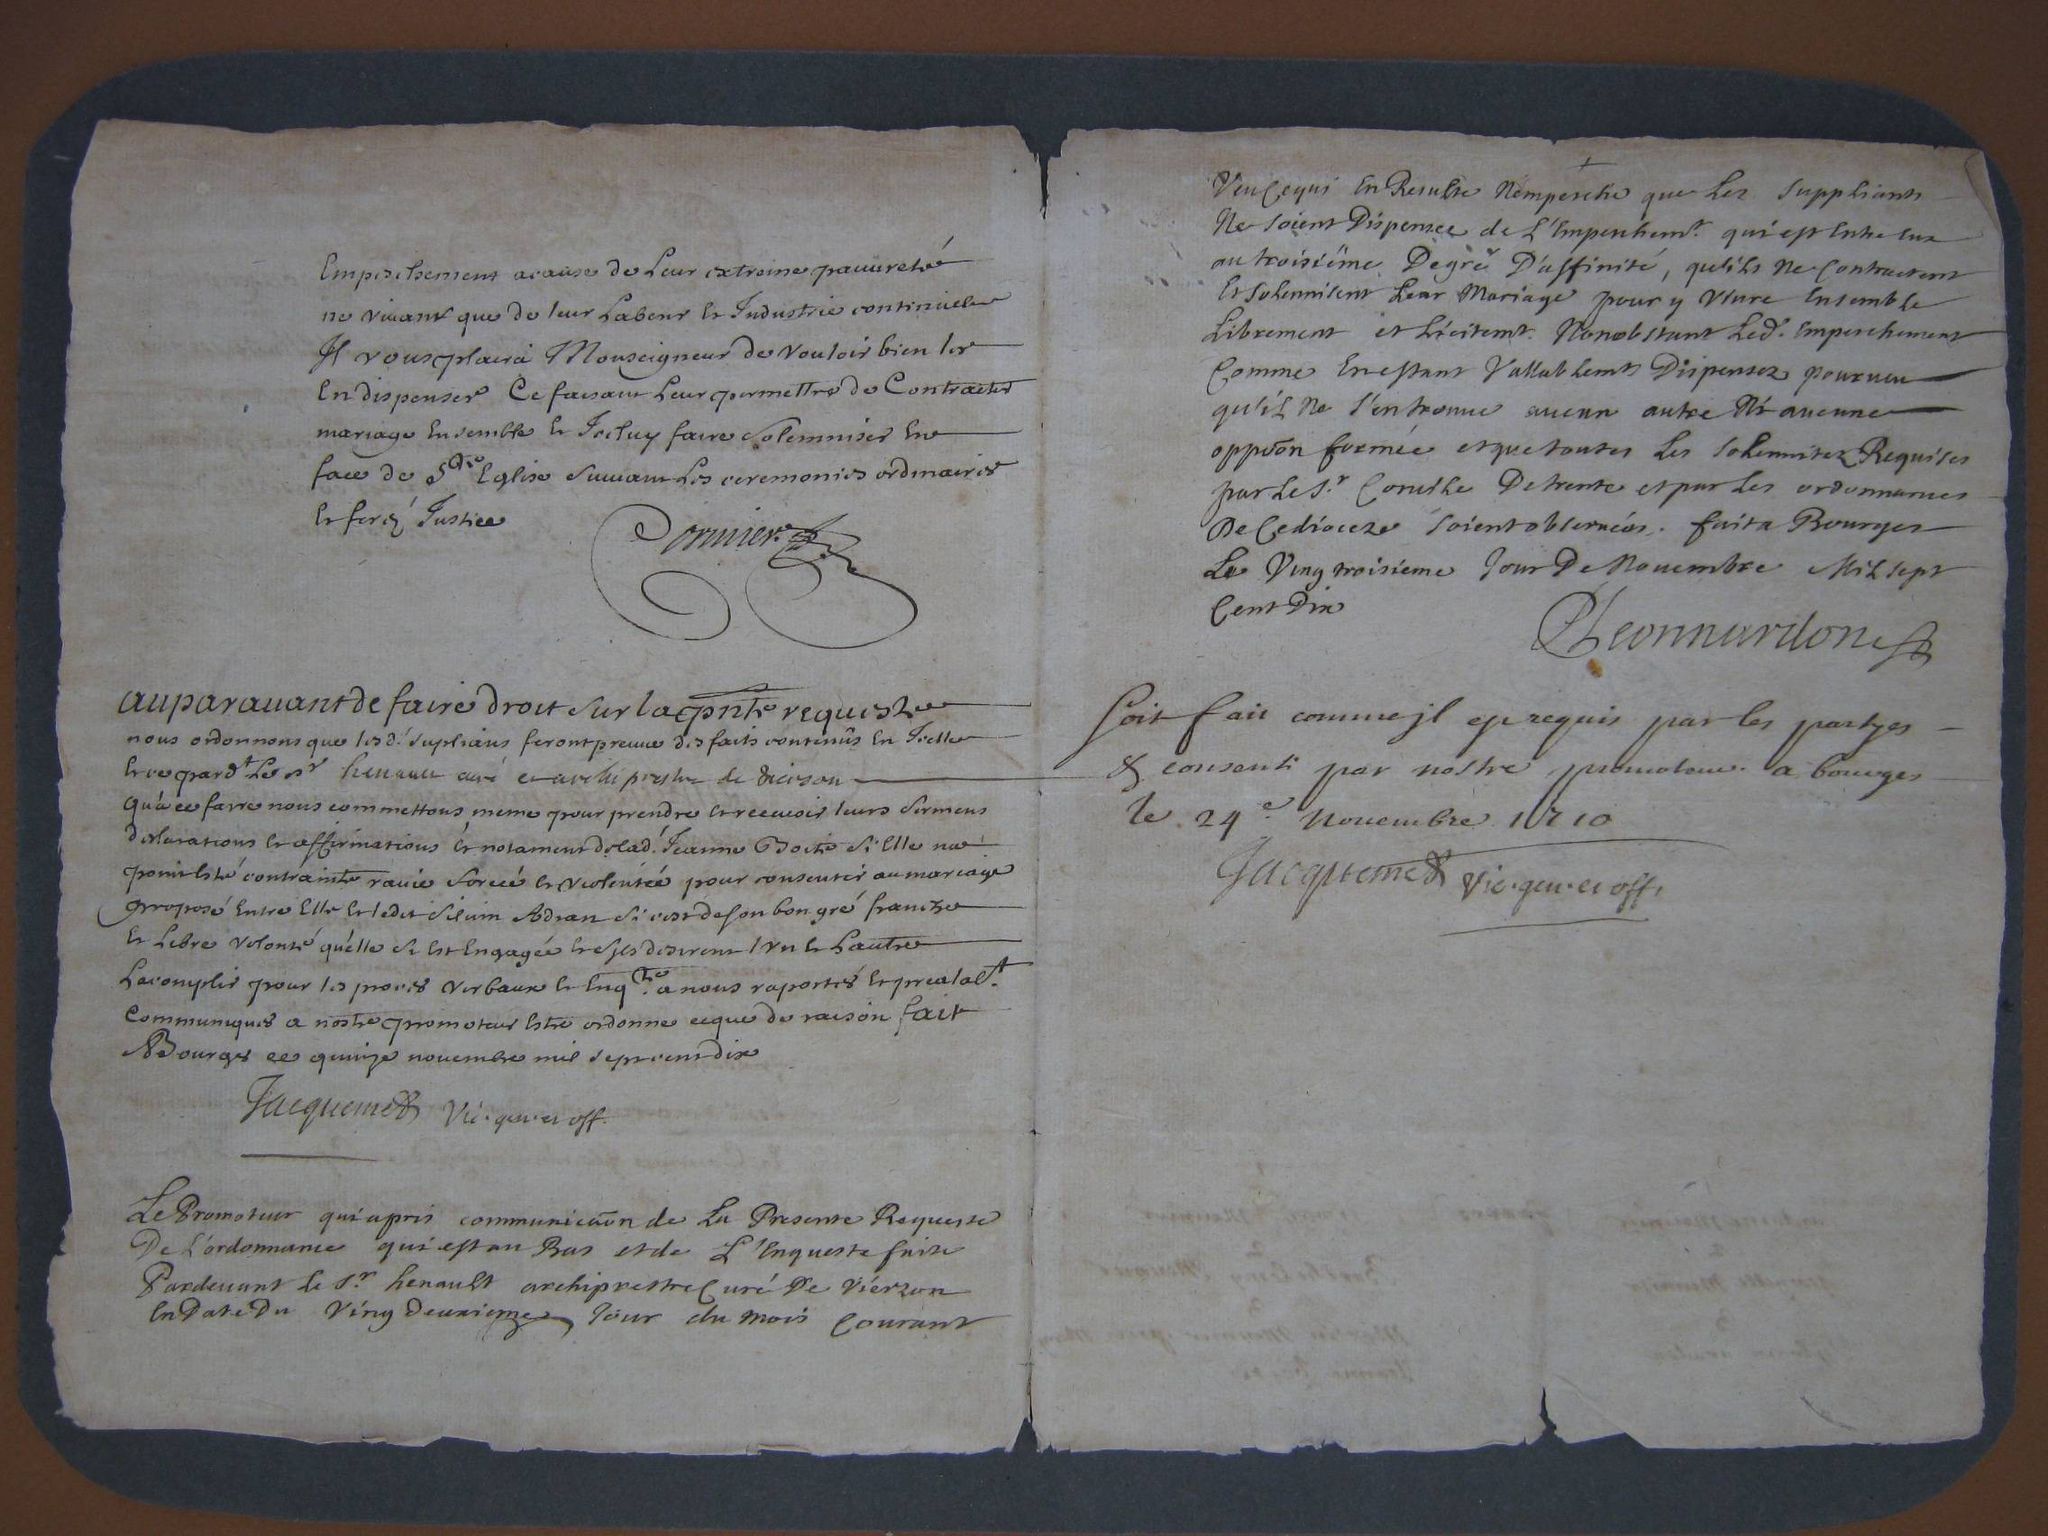 Empeschement acause de leur extreme pauureté
ne viuant que de leur Labeur et Industrie continuelle
Il vous plaira Monseigneur de vouloir bien les
En dispenser Ce faisant Leur permettre de Contracter
mariage Ensemble et Iceluy faire Solemniser En
face de Ste Eglise Suiuant Les ceremonies ordinaires
Et ferez Justice
Cormier
auparauant de faire droit Sur la pnte requeste
nous ordonnons que lesd. Supliants feront preuue des faits contenus En Icelle
Et ce pardt Le Sr henault curé et archiprestre de vierson
qu'a ce faire nous commettons, meme pour prendre et receuoir leurs Sermens
declarations et affirmations et notament de lad. Jeanne Si Elle na
point Esté contrainte rauie forcée et violentée pour consentir au mariage
proposé Entre Elle et ledit Siluin Si cest de son bon gré franche
et Libre volonté quelle Si Est Engagée et Sils desirent lvn et Lautre
Lacomplir pour les proces verbaux et Enqte a nous raportés et prealabt.
Communiqués a nostre promoteur Estre ordonne ceque de raison fait
A Bourges ce quinze nouembre mil Sept cent dix
Jacquemet vic. gen. et off.
Le Promoteur qui apris communicaōn de La Presente Requeste
De L'ordonnance qui est au Bas et de L'Enqueste faite
Pardeuant le Sr henault archiprestre Curé De Vierzon
En Date Du Ving Deuxieme Jour du mois Courant
Veu Cequi En Resulte Nempesche que Les Suppliants
Ne Soient Dispensee de L'Empeschemt qui est Entre Eux
au troisième Degré D'affinité, qu'ils Ne Contractent
Et Solennisent Leur Mariage pour y Viure Ensemble
Librement et Licitemt. Nonobstant Led. Empeschement
Comme En estant Vallablemt Dispensez pourueu
qu'il Ne S'en trouue aucun autre Ni aucune
oppōon formée et que toutes Les Solennitez Requises
par Le St Concile De trente et par Les ordonnances
De Ce dioceze Soient obseruées. fait a Bourges
Le Ving troisieme Jour De Nouembre Mil Sept
Cent Dix
Leonnardon
Soit fait comme jl est requis par les partyes
& consenti par nostre promoteur a bourges
le 24e Nouembre 1710
Jacquemet Vic. gen. et off.